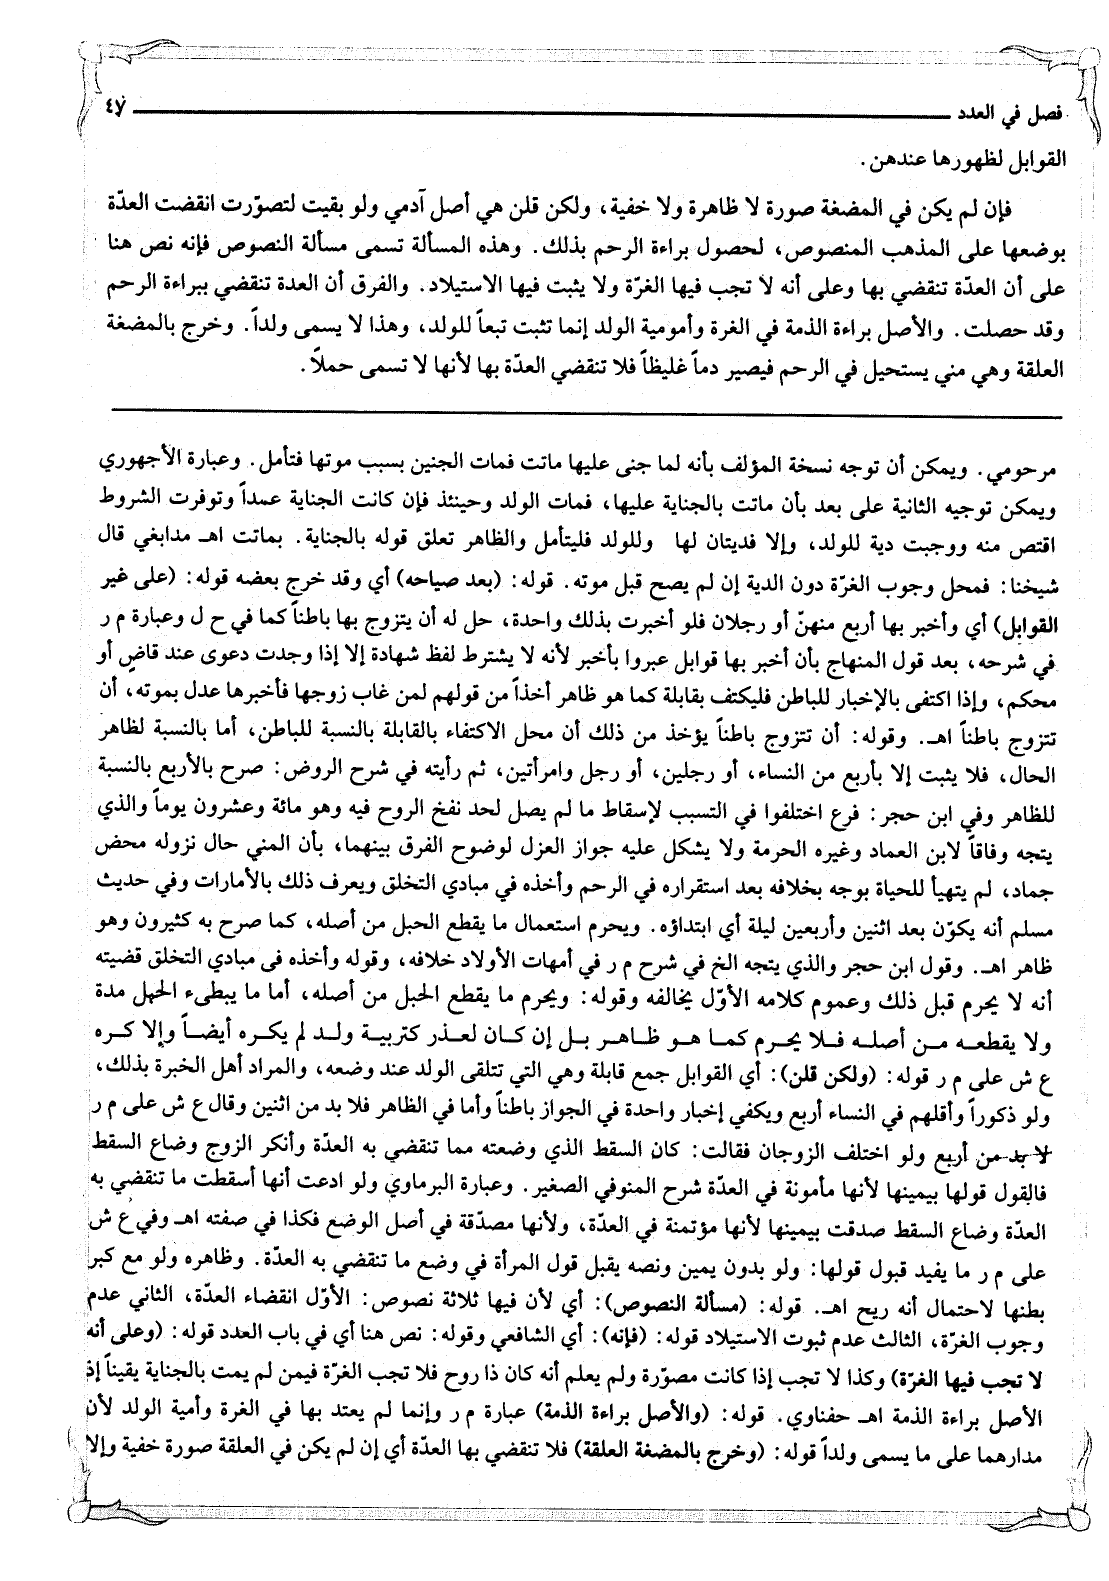 فصل في العدد ٤٧
القوابل لظهورها عندهن.
فإن لم يكن في المضغة صورة لا ظاهرة ولا خفية، ولكن قلن هي أصل آدمي ولو بقيت لتصوّرت انقضت العدّة
بوضعها على المذهب المنصوص، لحصول براءة الرحم بذلك. وهذه المسألة تسمى مسألة النصوص فإنه نص هنا
على أن العدّة تنقضي بها وعلى أنه لا تجب فيها الغرّة ولا يثبت فيها الاستيلاد. والفرق أن العدة تنقضي ببراءة الرحم
وقد حصلت. والأصل براءة الذمة في الغرة وأمومية الولد إنما تثبت تبعاً للولد، وهذا لا يسمى ولداً. وخرج بالمضغة
العلقة وهي مني يستحيل في الرحم فيصير دماً غليظاً فلا تنقضي العدّة بها لأنها لا تسمى حملاً.
مرحومي. ويمكن أن توجه نسخة المؤلف بأنه لما جنى عليها ماتت فمات الجنين بسبب موتها فتأمل. وعبارة الأجهوري
ويمكن توجيه الثانية على بعد بأن ماتت بالجناية عليها، فمات الولد وحينئذ فإن كانت الجناية عمداً وتوفرت الشروط
اقتص منه ووجبت دية للولد، وإلا فديتان لها وللولد فليتأمل والظاهر تعلق قوله بالجناية. بماتت اهـ مدابغي قال
شيخنا: فمحل وجوب الغرّة دون الدية إن لم يصح قبل موته. قوله: (بعد صياحه) أي وقد خرج بعضه قوله: (على غير
القوابل) أي وأخبر بها أربع منهنّ أو رجلان فلو أخبرت بذلك واحدة، حل له أن يتزوج بها باطناً كما في ح ل وعبارة م ر
في شرحه، بعد قول المنهاج بأن أخبر بها قوابل عبروا بأخبر لأنه لا يشترط لفظ شهادة إلا إذا وجدت دعوى عند قاضٍ أو
محكم، وإذا اكتفى بالإخبار للباطن فليكتف بقابلة كما هو ظاهر أخذاً من قولهم لمن غاب زوجها فأخبرها عدل بموته، أن
تتزوج باطناً اهـ. وقوله: أن تتزوج باطناً يؤخذ من ذلك أن محل الاكتفاء بالقابلة بالنسبة للباطن، أما بالنسبة لظاهر
الحال، فلا يثبت إلا بأربع من النساء، أو رجلين، أو رجل وامرأتين، ثم رأيته في شرح الروض: صرح بالأربع بالنسبة
للظاهر وفي ابن حجر: فرع اختلفوا في التسبب لإسقاط ما لم يصل لحد نفخ الروح فيه وهو مائة وعشرون يوماً والذي
يتجه وفاقاً لابن العماد وغيره الحرمة ولا يشكل عليه جواز العزل لوضوح الفرق بينهما، بأن المني حال نزوله محض
جماد، لم يتهيأ للحياة بوجه بخلافه بعد استقراره في الرحم وأخذه في مبادي التخلق ويعرف ذلك بالأمارات وفي حديث
مسلم أنه يكوّن بعد اثنين وأربعين ليلة أي ابتداؤه. ويحرم استعمال ما يقطع الحبل من أصله، كما صرح به كثيرون وهو
ظاهر اهـ. وقول ابن حجر والذي يتجه الخ في شرح م ر في أمهات الأولاد خلافه، وقوله وأخذه في مبادي التخلق قضيته
أنه لا يحرم قبل ذلك وعموم كلامه الأوّل يخالفه وقوله: ويحرم ما يقطع الحبل من أصله، أما ما يبطىء الحبل مدة
ولا يقطعه من أصله فلا يحرم كما هو ظاهر بل إن كان لعذر كتربية ولد لم يكره أيضاً وإلا كره
ع ش على م ر قوله: (ولكن قلن): أي القوابل جمع قابلة وهي التي تتلقى الولد عند وضعه، والمراد أهل الخبرة بذلك،
ولو ذكوراً وأقلهم في النساء أربع ويكفي إخبار واحدة في الجواز باطناً وأما في الظاهر فلا بد من اثنين وقال ع ش على م ر
لا بد من أربع ولو اختلف الزوجان فقالت: كان السقط الذي وضعته مما تنقضي به العدّة وأنكر الزوج وضاع السقط
فالقول قولها بيمينها لأنها مأمونة في العدّة شرح المنوفي الصغير. وعبارة البرماوي ولو ادعت أنها أسقطت ما تنقضي به
العدّة وضاع السقط صدقت بيمينها لأنها مؤتمنة في العدّة، ولأنها مصدّقة في أصل الوضع فكذا في صفته اهـ وفي ع ش
على م ر ما يفيد قبول قولها: ولو بدون يمين ونصه يقبل قول المرأة في وضع ما تنقضي به العدّة. وظاهره ولو مع كبر
بطنها لاحتمال أنه ريح اهـ. قوله: (مسألة النصوص): أي لأن فيها ثلاثة نصوص: الأوّل انقضاء العدّة، الثاني عدم
وجوب الغرّة، الثالث عدم ثبوت الاستيلاد قوله: (فإنه): أي الشافعي وقوله: نص هنا أي في باب العدد قوله: (وعلى أنه
لا تجب فيها الغرة) وكذا لا تجب إذا كانت مصوّرة ولم يعلم أنه كان ذا روح فلا تجب الغرّة فيمن لم يمت بالجناية يقيناً إذ
الأصل براءة الذمة اهـ حفناوي. قوله: (والأصل براءة الذمة) عبارة م ر وإنما لم يعتد بها في الغرة وأمية الولد لأن
مدارهما على ما يسمى ولداً قوله: (وخرج بالمضغة العلقة) فلا تنقضي بها العدّة أي إن لم يكن في العلقة صورة خفية وإلا